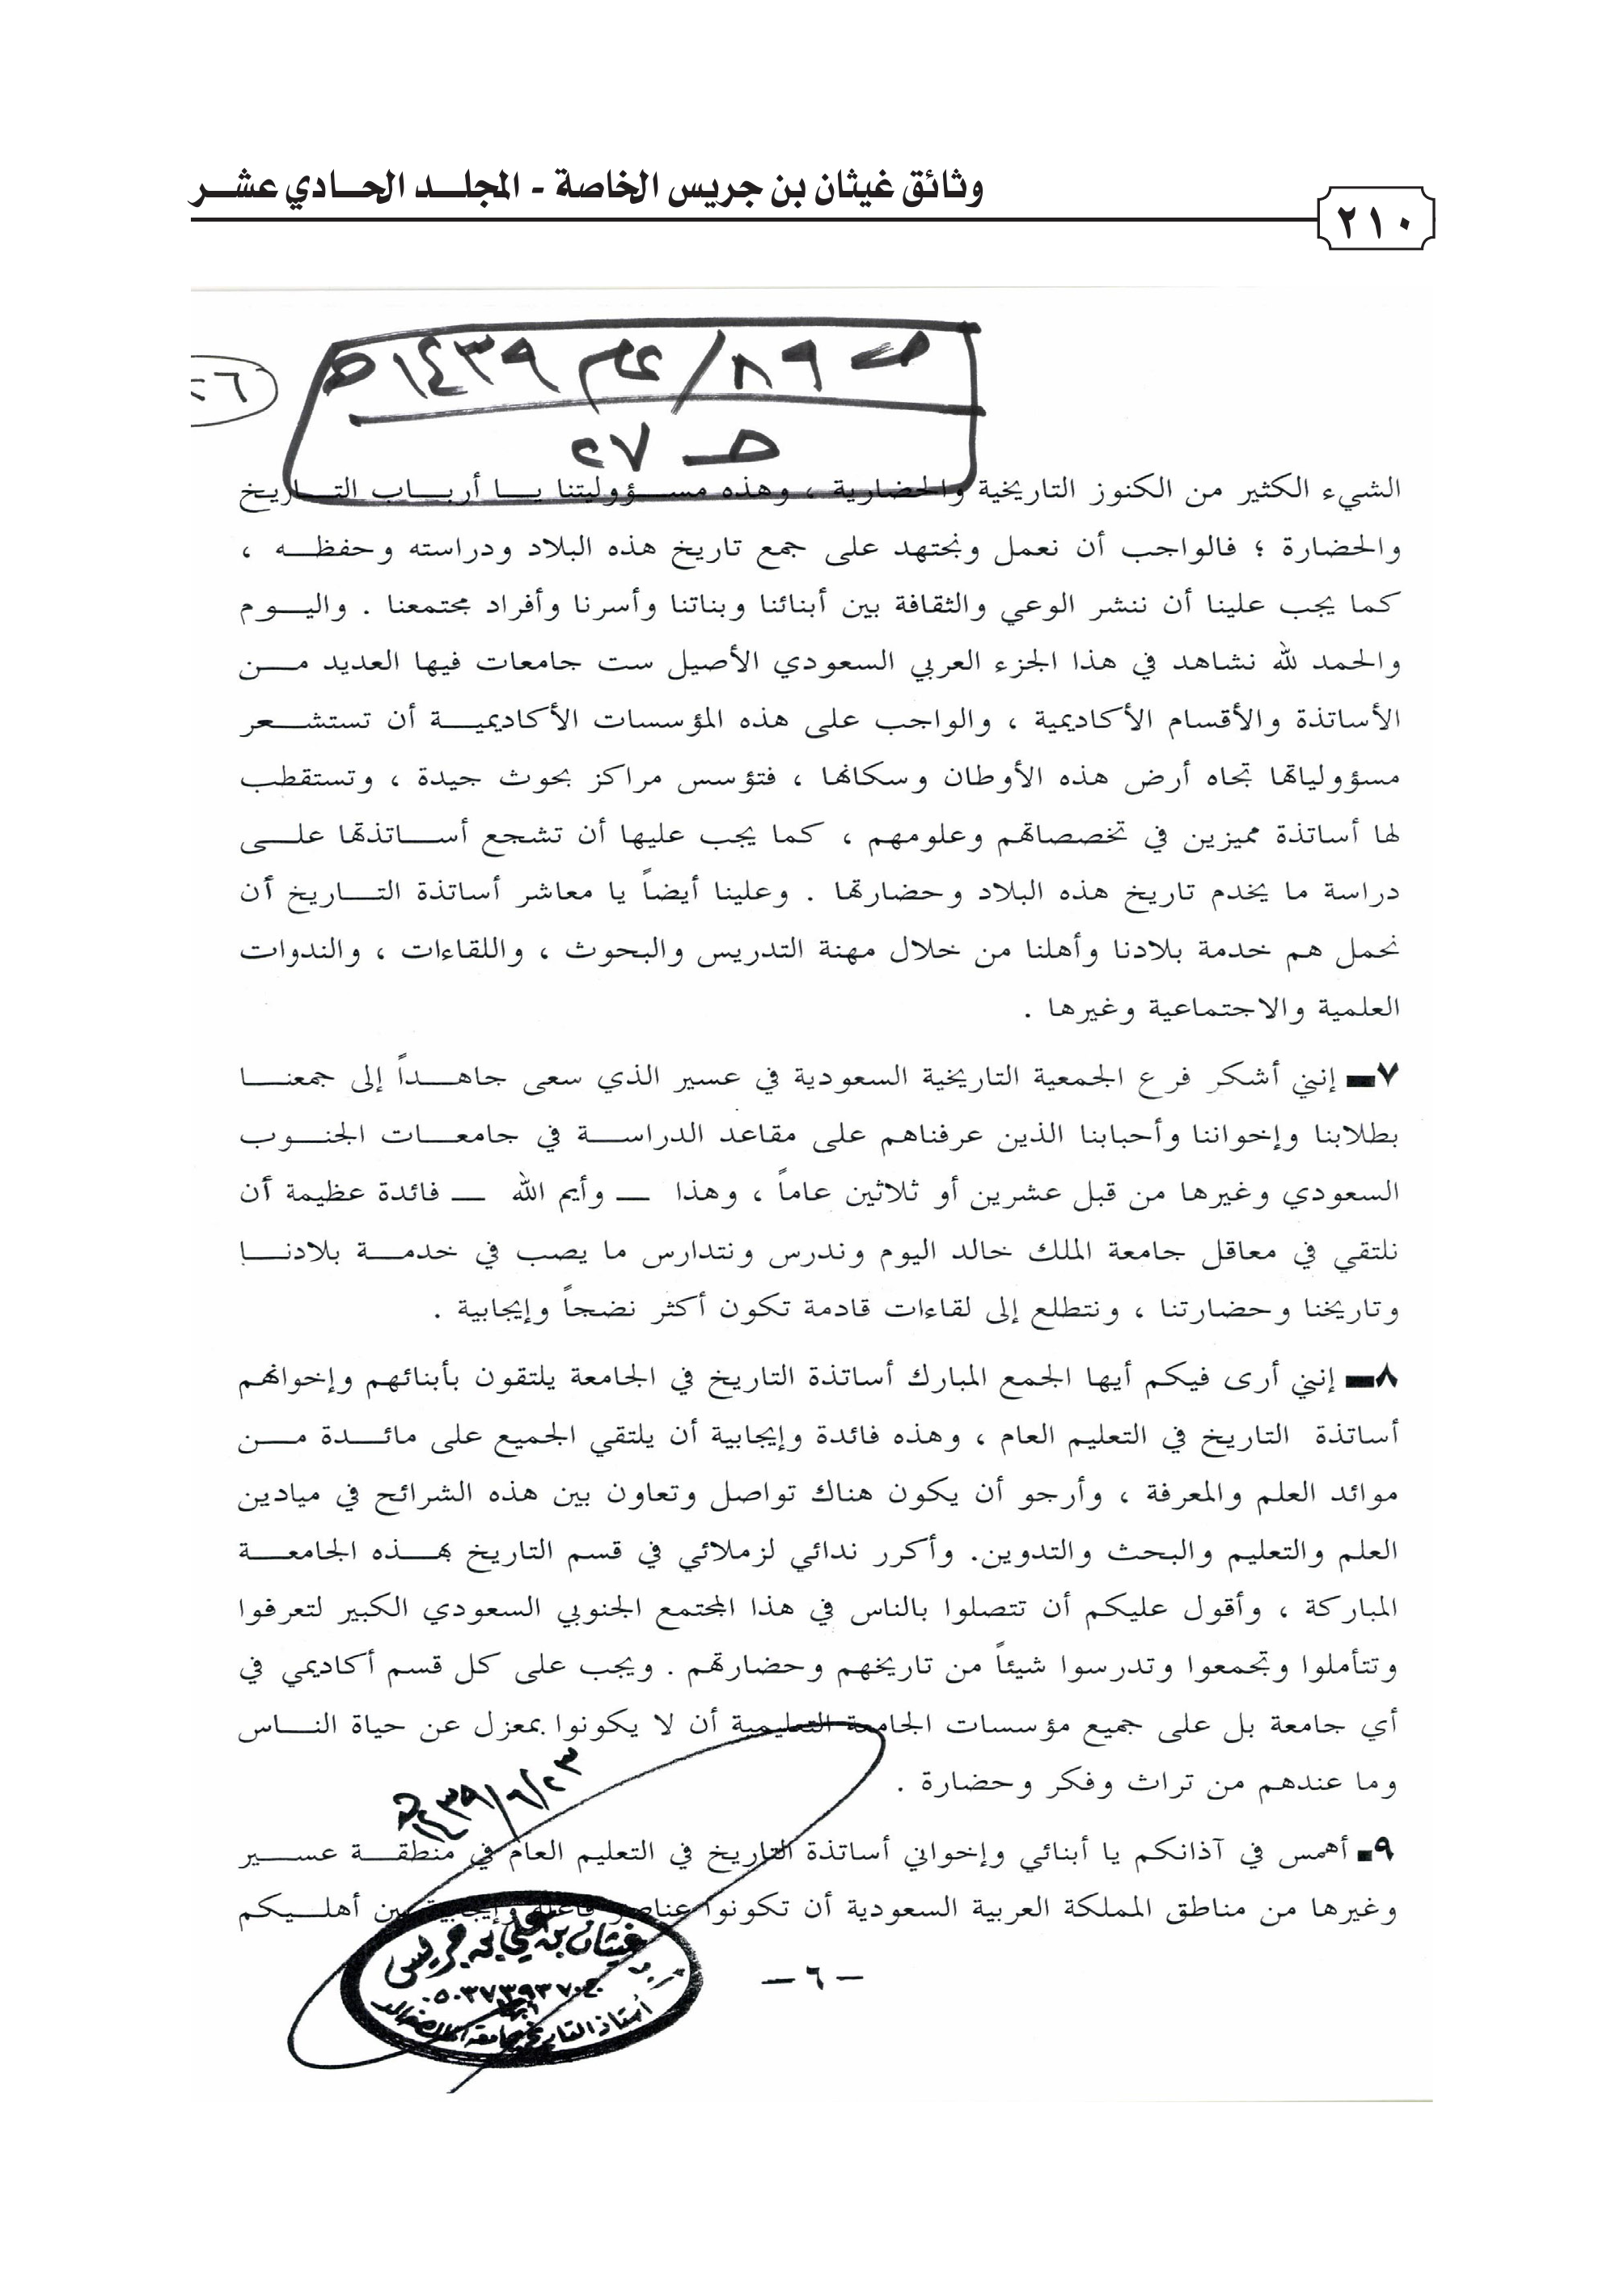 وثائق غيثان بن جريس الخاصة - المجلـــد الحـــادي عشـــر
٢١٠
صـ ٨٩ / عام ١٤٣٩هـ
صـ ٢٧
الشيء الكثير من الكنوز التاريخية والحضارية ، وهذه مسؤوليتنا يا أرباب التاريخ
والحضارة ؛ فالواجب أن نعمل ونجتهد على جمع تاريخ هذه البلاد ودراسته وحفظه ،
كما يجب علينا أن ننشر الوعي والثقافة بين أبنائنا وبناتنا وأسرنا وأفراد مجتمعنا . واليوم
والحمد لله نشاهد في هذا الجزء العربي السعودي الأصيل ست جامعات فيها العديد من
الأساتذة والأقسام الأكاديمية ، والواجب على هذه المؤسسات الأكاديمية أن تستشعر
مسؤولياتها تجاه أرض هذه الأوطان وسكانها ، فتؤسس مراكز بحوث جيدة ، وتستقطب
لها أساتذة مميزين في تخصصاتهم وعلومهم ، كما يجب عليها أن تشجع أساتذتها على
دراسة ما يخدم تاريخ هذه البلاد وحضارتها . وعلينا أيضاً يا معاشر أساتذة التاريخ أن
نحمل هم خدمة بلادنا وأهلنا من خلال مهنة التدريس والبحوث ، واللقاءات ، والندوات
العلمية والاجتماعية وغيرها .
٧ــ إنني أشكر فرع الجمعية التاريخية السعودية في عسير الذي سعى جاهداً إلى جمعنا
بطلابنا وإخواننا وأحبابنا الذين عرفناهم على مقاعد الدراسة في جامعات الجنوب
السعودي وغيرها من قبل عشرين أو ثلاثين عاماً ، وهذا ــ وأيم الله ــ فائدة عظيمة أن
نلتقي في معاقل جامعة الملك خالد اليوم وندرس ونتدارس ما يصب في خدمة بلادنا
وتاريخنا وحضارتنا ، ونتطلع إلى لقاءات قادمة تكون أكثر نضجاً وإيجابية .
٨ــ إنني أرى فيكم أيها الجمع المبارك أساتذة التاريخ في الجامعة يلتقون بأبنائهم وإخوانهم
أساتذة التاريخ في التعليم العام ، وهذه فائدة وإيجابية أن يلتقي الجميع على مائدة من
موائد العلم والمعرفة ، وأرجو أن يكون هناك تواصل وتعاون بين هذه الشرائح في ميادين
العلم والتعليم والبحث والتدوين. وأكرر ندائي لزملائي في قسم التاريخ بهذه الجامعة
المباركة ، وأقول عليكم أن تتصلوا بالناس في هذا المجتمع الجنوبي السعودي الكبير لتعرفوا
وتتأملوا وتجمعوا وتدرسوا شيئاً من تاريخهم وحضارتهم . ويجب على كل قسم أكاديمي في
أي جامعة بل على جميع مؤسسات الجامعة التعليمية أن لا يكونوا بمعزل عن حياة الناس
وما عندهم من تراث وفكر وحضارة .
١٤٣٩/٦/٢٣هـ
٩ـ أهمس في آذانكم يا أبنائي وإخواني أساتذة التاريخ في التعليم العام في منطقة عسير
وغيرها من مناطق المملكة العربية السعودية أن تكونوا عناصر فاعلة وإيجابية بين أهليكم
أ.د. غيثان بن علي بن جريس
ج ٠٥٠٣٧٣٩٣٧٠
أستاذ التاريخ بجامعة الملك خالد
أبها
– ٦ –